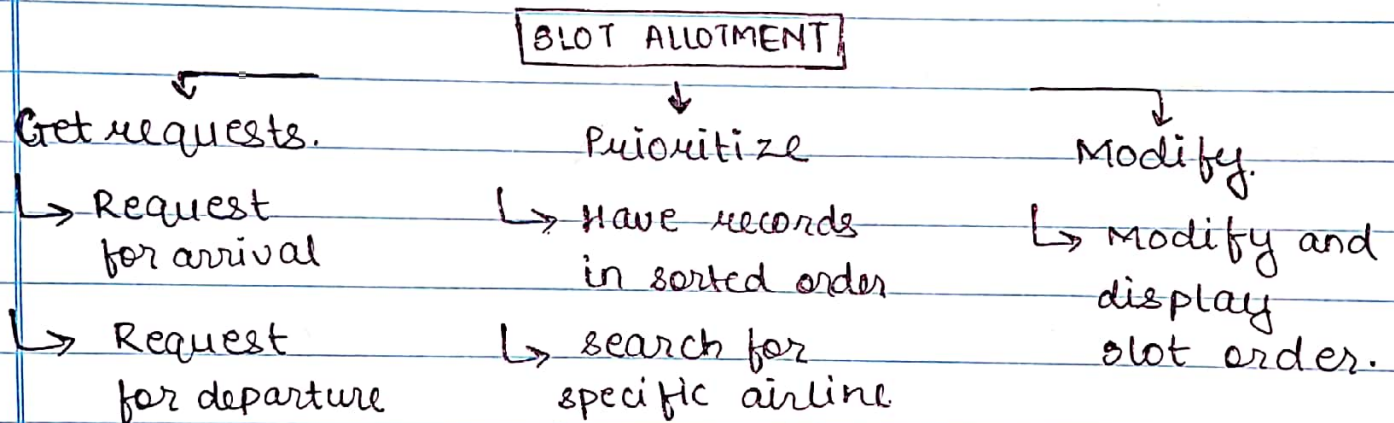 SLOT ALLOTMENT
Get requests.
↳ Request
for arrival
↳ Request
for departure
Prioritize
↳ Have records
in sorted order
↳ search for
specific airline
Modify.
↳ Modify and
display
slot order.